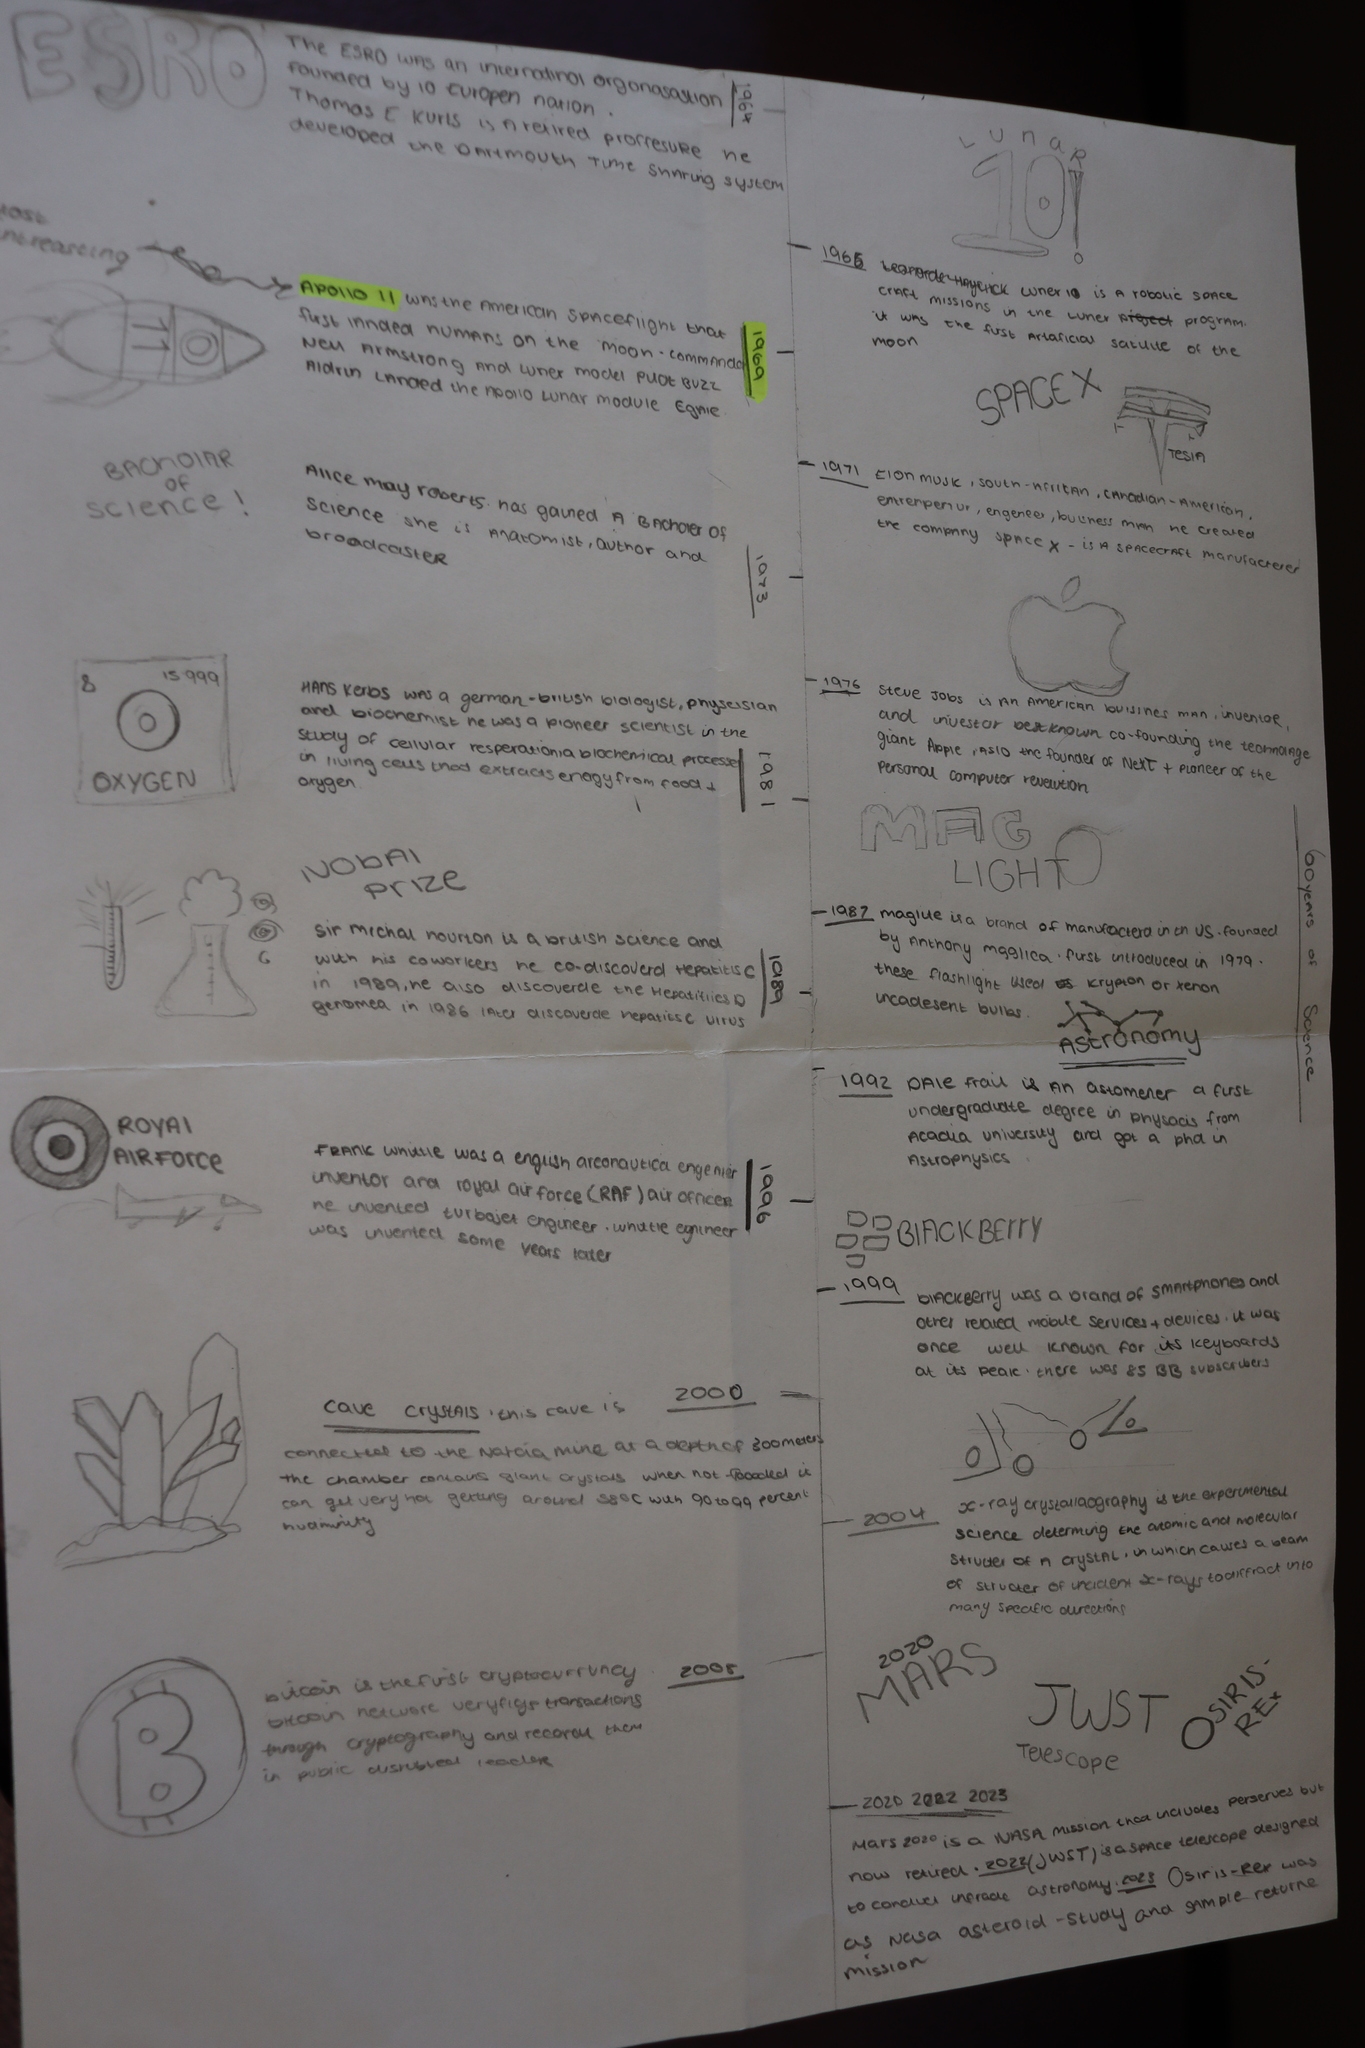 ESRO
The ESRO was an internatinol orgonasastion
founded by 10 Europen nation.
Thomas E Kurls is a retired proffesure he
developed the Dartmouth Time Sharing system
1964
Lunar
10!
1966
Luner 10 is a robotic space
craft missions in the luner program.
it was the first Artaficial satilite of the
moon
most
intreasting
APOllO 11 was the American Spaceflight that
fust lnnded humans on the moon-commando
Neil Armstrong and luner model pilot BUZZ
Aldrin Landed the Apollo Lunar module Egnie
1969
SPACE X
TESlA
1971
Elon musk, south-African, Canadian-American,
entrenpenur, engeneer, buisness man he created
the company space x - is a spacecraft manufacterer
BAcholAR
of
science!
Alice may roberts has gained A Bachoter of
Science she is Anatomist, author and
broadcaster
1973
8
15 999
OXYGEN
1976
Steve Jobs is An American buisines man, inventoe,
and investor best known co-founding the technolage
giant Apple, also the founder of NeXT + pioneer of the
Personal computer revelution
HANS Kerbs was a german-british biologist, physesian
and biochemist he was a pioneer scientist in the
study of cellular resperation a biochemical processe
in living cells that extracts enogy from food +
oxygen.
1981
MAG
LIGHT
60 years of Science
1987
maglite is a brand of manufactera in th US. founded
by Anthony maglica. first introduced in 1979.
these flashlight used krypton or xenon
incadesent bulbs.
NObAl
Prize
Sir Michal hourton is a british science and
with his coworkers he co-discoverd Hepatitis C
in 1989, he also discoverde the Hepatities D
genomea in 1986 later discoverde hepatiese virus
1989
Astronomy
1992
DAle frail is an astomener a first
undergraduate degree in physacis from
Acadia university and got a phd in
Astrophysics
ROYAl
AIRForce
FRANK Whittle was a english areonautica engenier
inventor and royal air force (RAF) air officer
he invented turbojet engineer. whittle egnineer
was invented some years later
1996
BlACKBERRY
1999
BlACKBerry was a brand of smartphones and
other related mobile services + devices. it was
once well known for its keyboards
at its peak. there was 85 BB subscribers
2000
Cave Crystals. this cave is
connected to the Natcia mine at a depth of 300 meters
the chamber contains giant crystals when not floooded it
can get very hot getting around 58°C with 90 to 99 percent
huaminity
2004
x-ray crystallaography is the experimental
science determing the atomic and molecular
structer of a crystal, in which causes a beam
of structer of incident x-rays to diffract into
many specific directions
bitcoin is the first cryptocurruncy
bitcoin network veryfigs transactions
through cryptography and records them
in public
2008
2020
MARS
JWST
Telescope
OSIRIS-
REx
2020 2022 2023
Mars 2020 is a NASA mission that includes perserves but
now retired. 2022 (JWST) is a space telescope designed
to conduct infrade astronomy. 2023 Osiris-Rex was
as Nasa asteroid-study and sample returne
mission